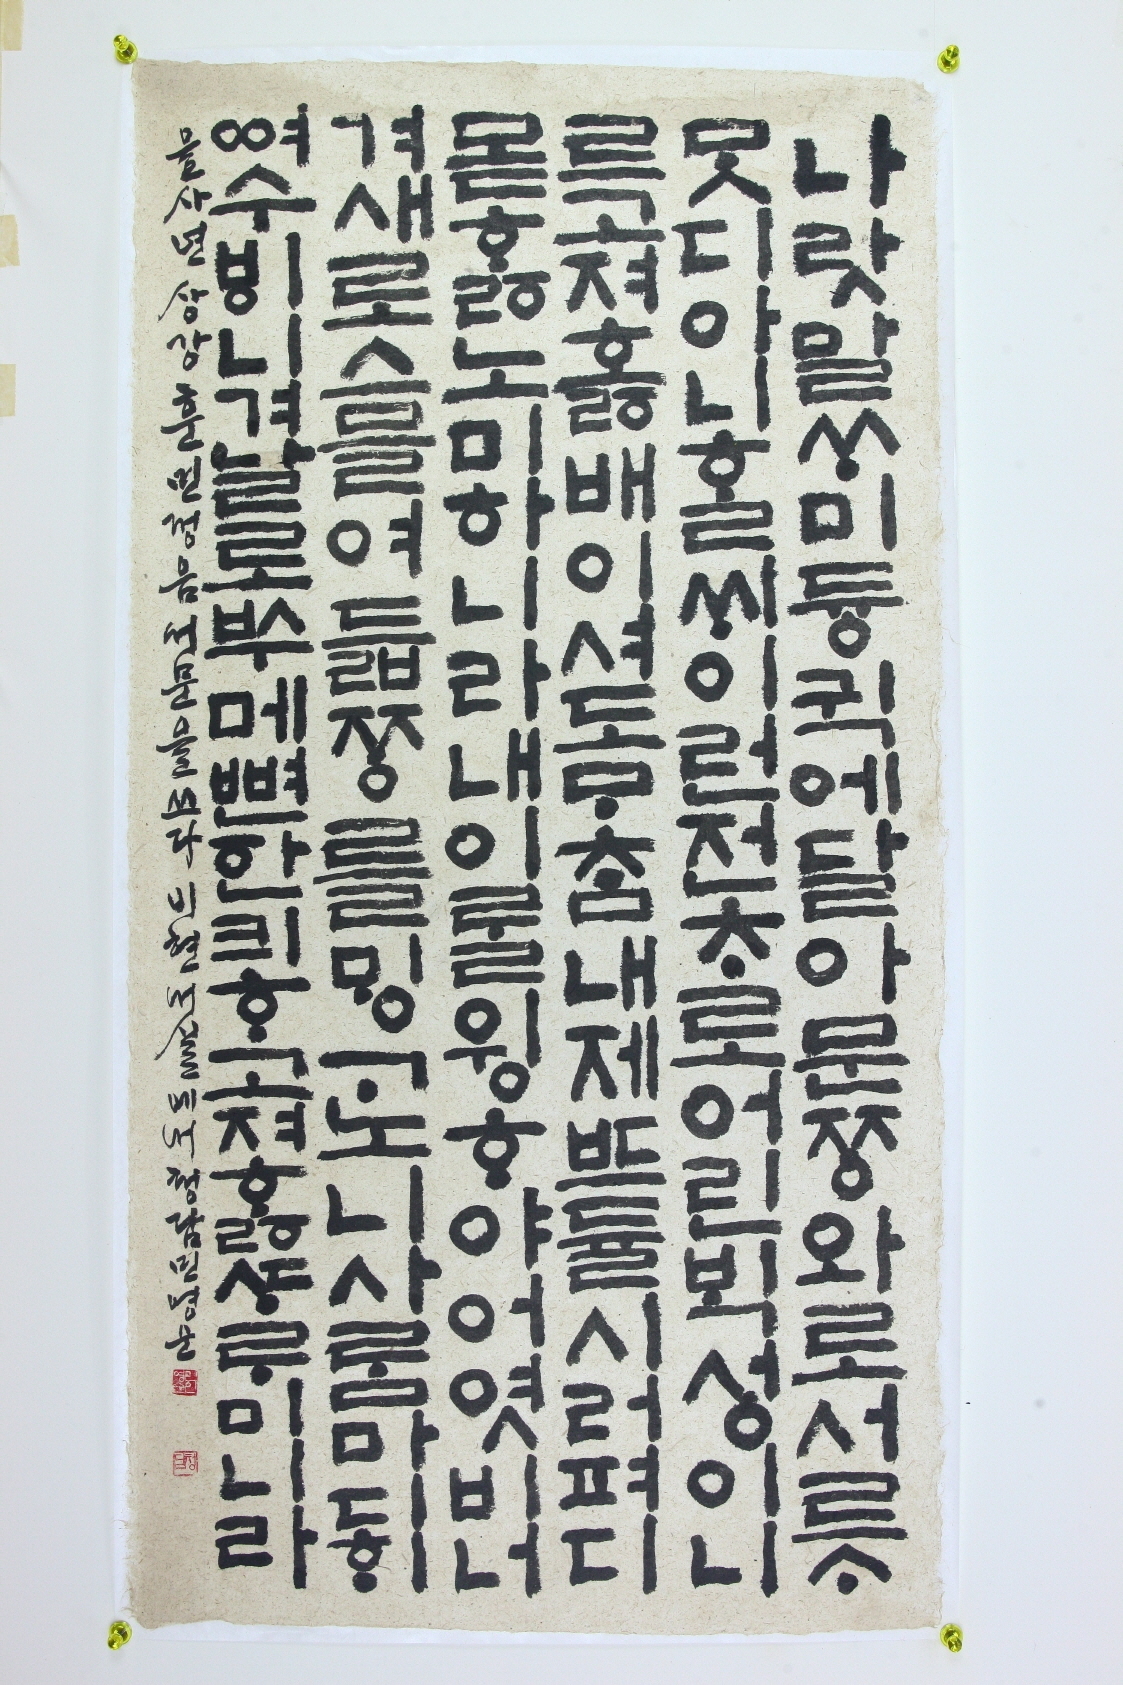 나랏말ᄊᆞ미듕귁에달아문ᄍᆞᆼ와로서르ᄉᆞ
ᄆᆞᆺ디아니ᄒᆞᆯᄊᆡ이런젼ᄎᆞ로어린ᄇᆡᆨ셩이니
르고져ᄒᆞᇙ배이셔도ᄆᆞᄎᆞᆷ내제ᄠᅳ들시러펴디
몯ᄒᆞᇙ노미하니라내이ᄅᆞᆯ윙ᄒᆞ야어엿비너
겨새로스믈여듧ᄍᆞᆼᄅᆞᆯᄆᆡᆼᄀᆞ노니사ᄅᆞᆷ마다ᄒᆡ
ᅇᅧ수ᄫᅵ니겨날로ᄡᅮ메뼌한킈ᄒᆞ고져ᄒᆞᇙᄯᆞᄅᆞ미니라
을사년 상강 훈민정음 서문을 쓰다 비현서실에서 청담